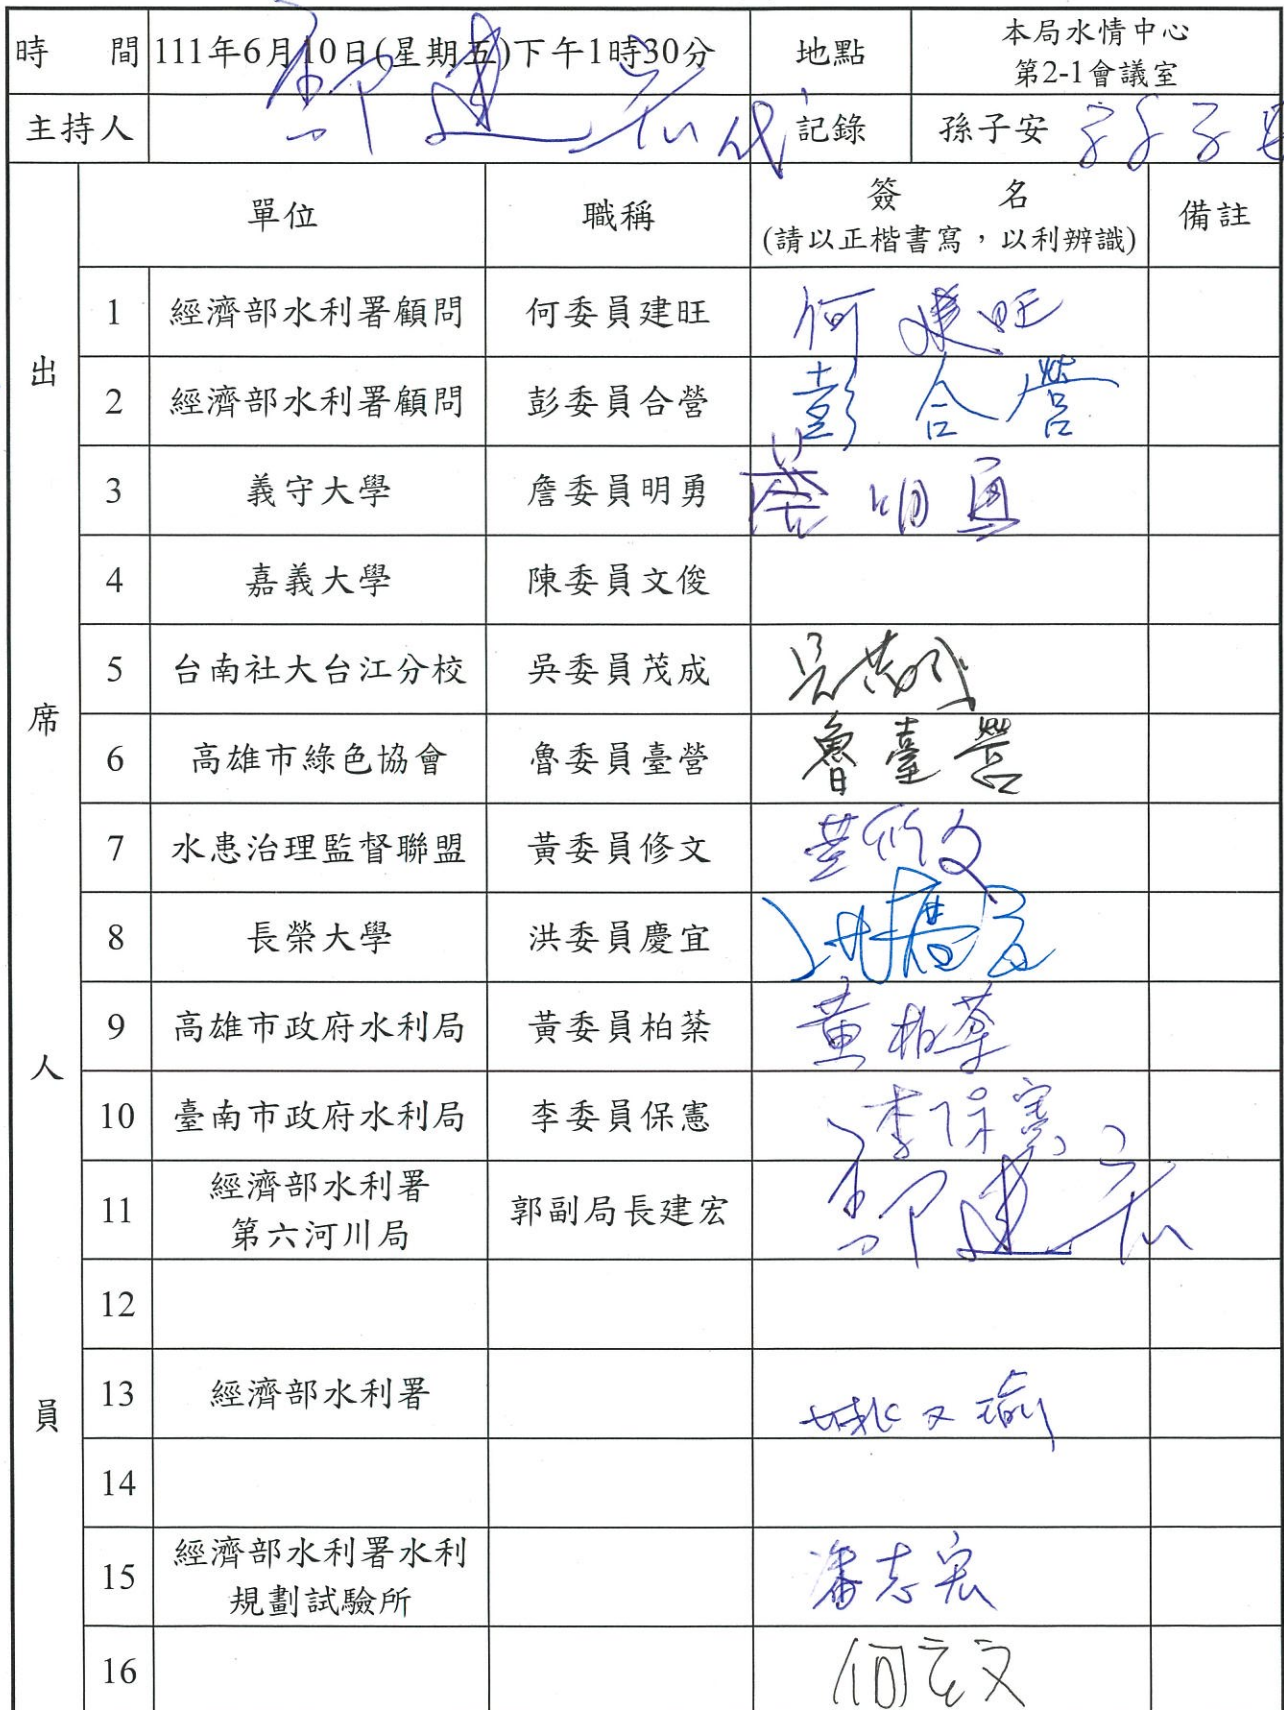 時間 111年6月10日(星期五)下午1時30分 地點 本局水情中心
第2-1會議室
主持人 郭建宏代 記錄 孫子安 孫子安
出席人員
單位 職稱 簽名 備註
(請以正楷書寫,以利辨識)
1 經濟部水利署顧問 何委員建旺 何建旺
2 經濟部水利署顧問 彭委員合營 彭合營
3 義守大學 詹委員明勇 詹明勇
4 嘉義大學 陳委員文俊
5 台南社大台江分校 吳委員茂成 吳茂成
6 高雄市綠色協會 魯委員臺營 魯臺營
7 水患治理監督聯盟 黃委員修文 黃修文
8 長榮大學 洪委員慶宜 洪慶宜
9 高雄市政府水利局 黃委員柏棻 黃柏棻
10 臺南市政府水利局 李委員保憲 李保憲
11 經濟部水利署
第六河川局 郭副局長建宏 郭建宏
12
13 經濟部水利署
14
15 經濟部水利署水利
規劃試驗所 潘志宏
16